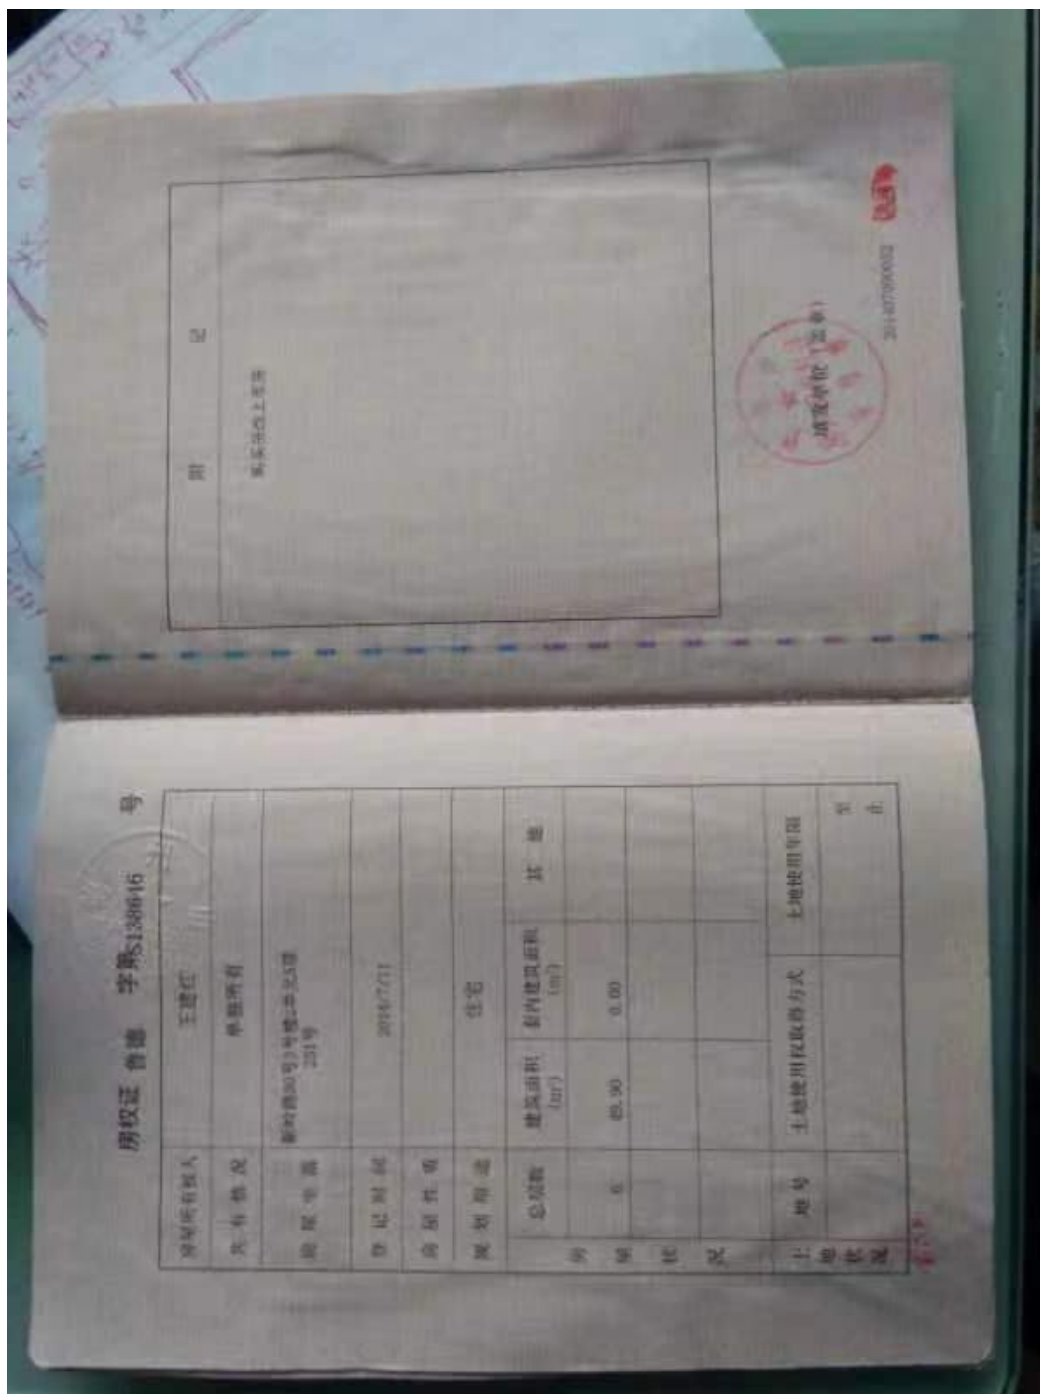 房权证 鲁德 字第S138646 号
房屋所有权人 王建红
共有情况 单独所有
房屋坐落
231号
登记时间 2014/7/11
房屋性质
规划用途 住宅
房屋状况
总层数 建筑面积(m²) 套内建筑面积(m²) 其他
6 89.90 0.00
土地状况
地号 土地使用权取得方式 土地使用年限
至
止
附 记
填发单位(盖章)